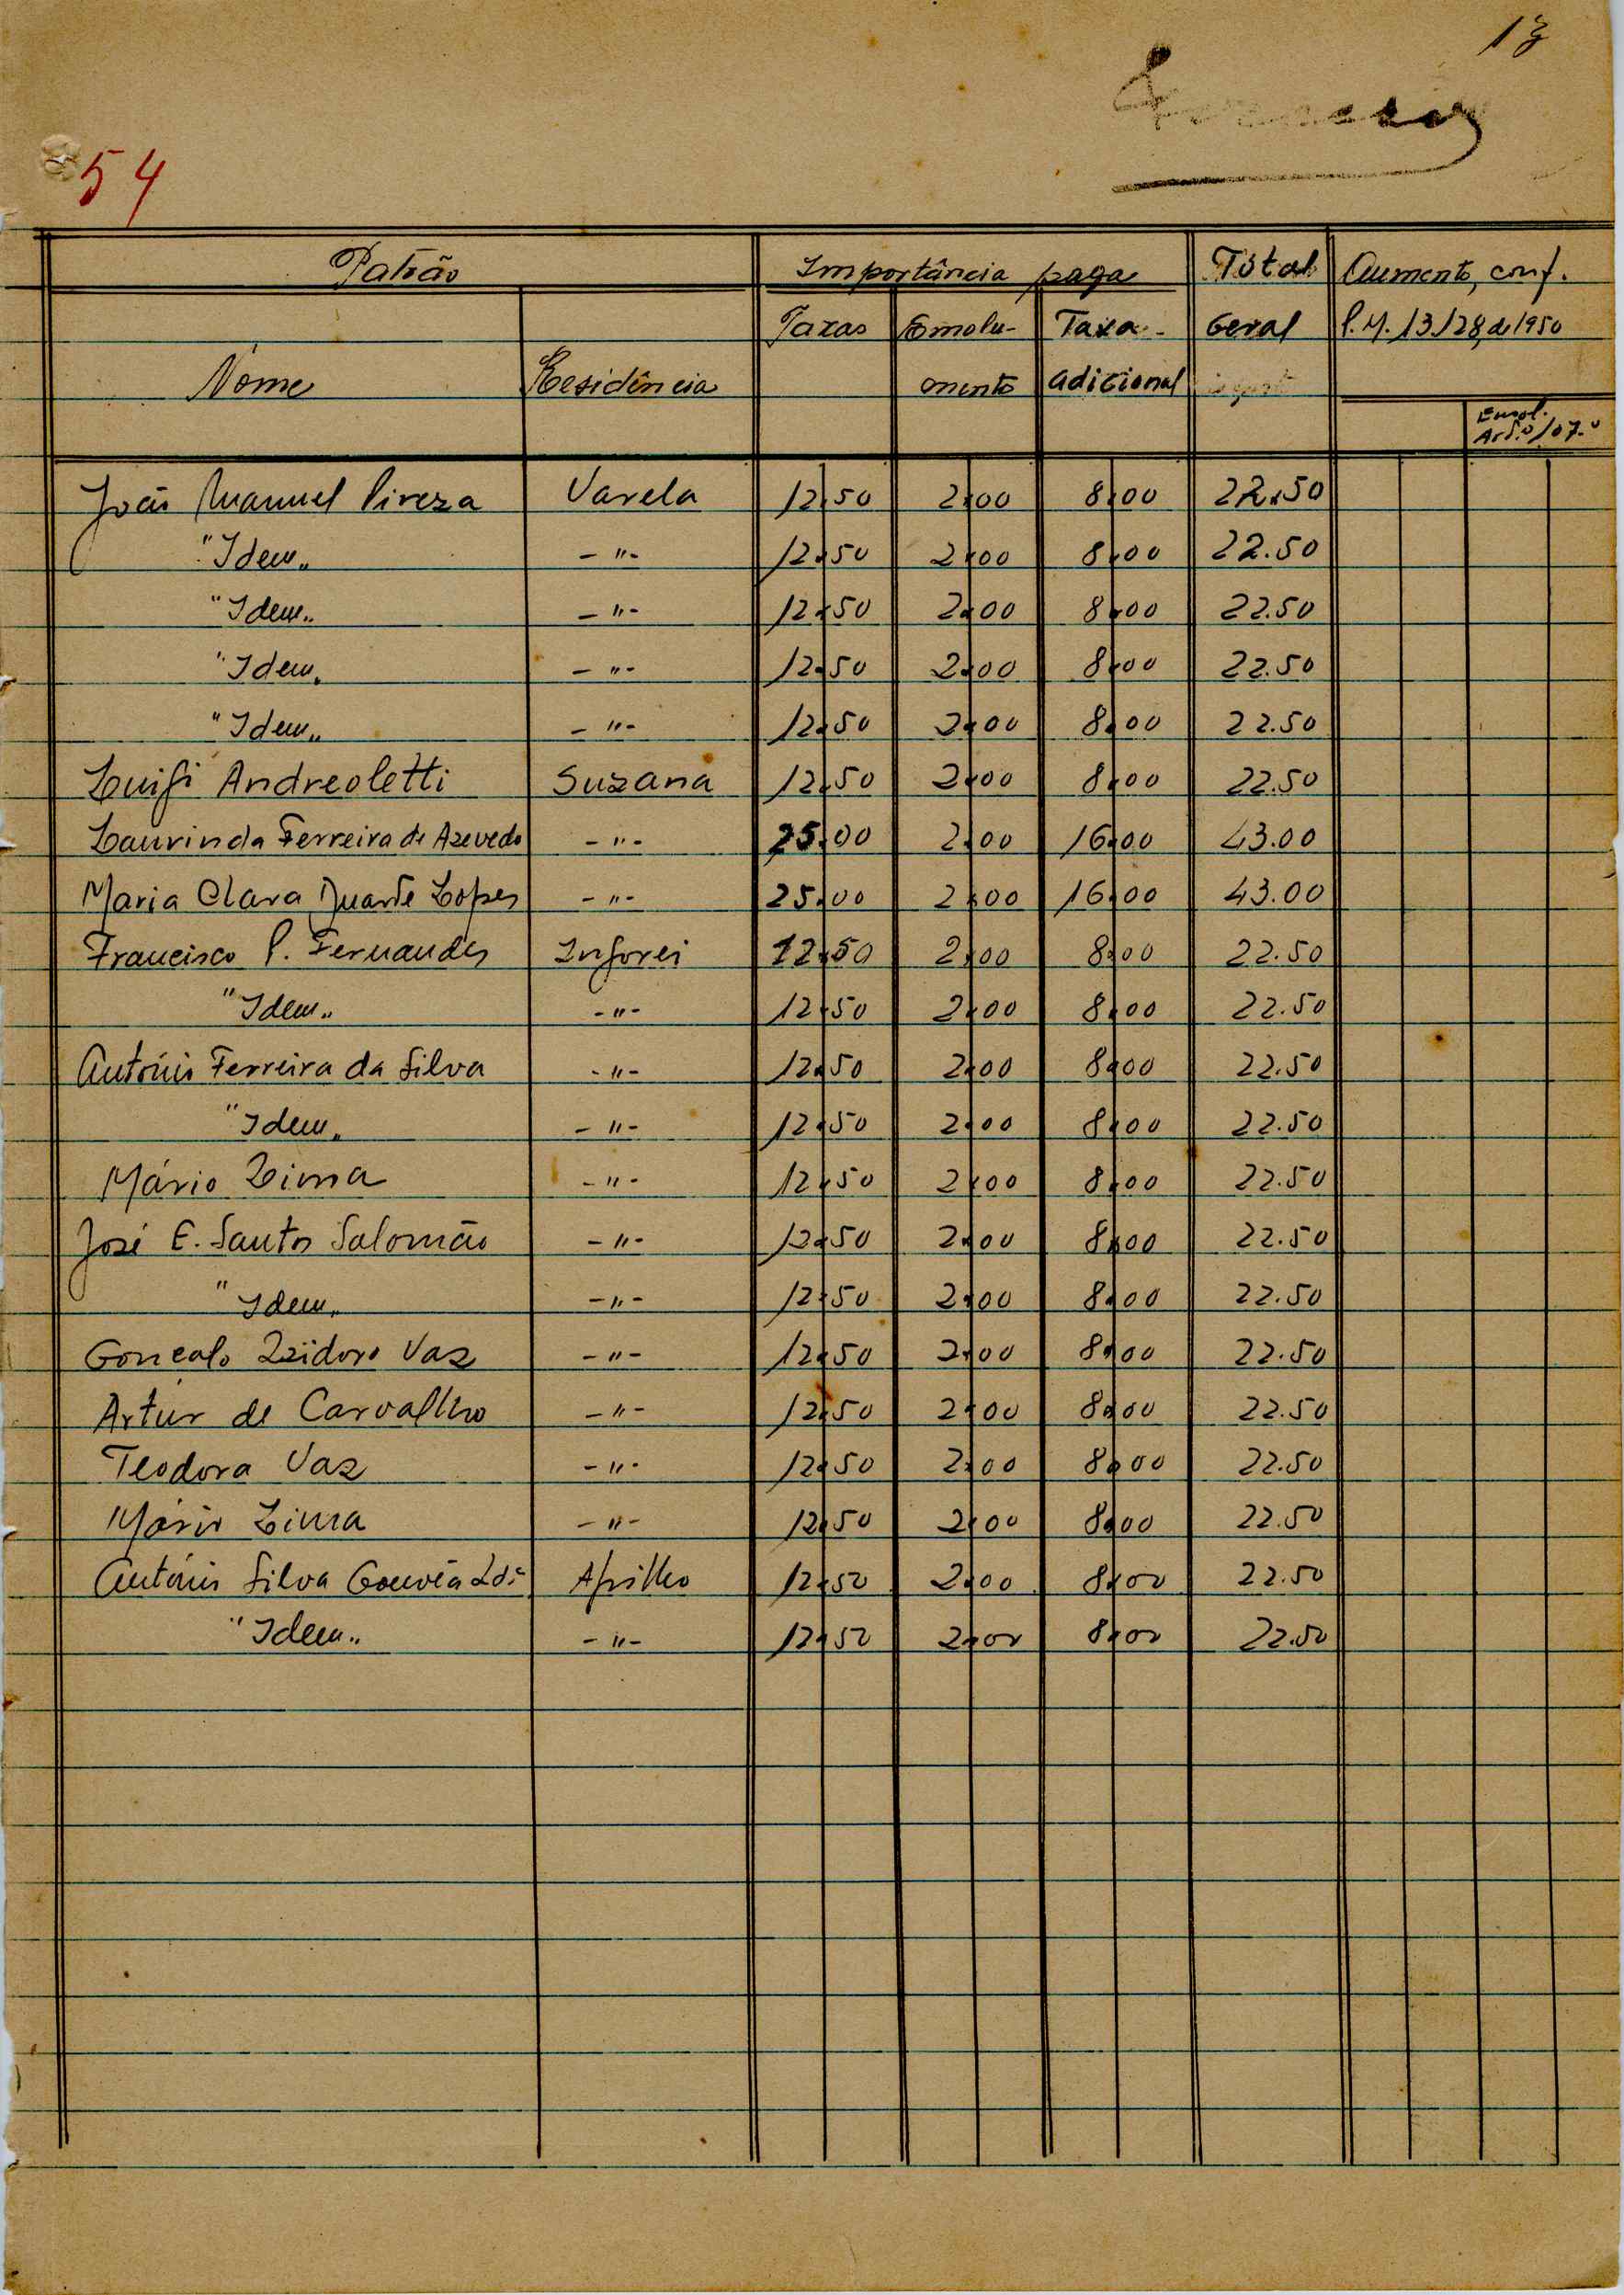 13
54
Patrão Importância paga Total Aumento, conf.
Taxas Emolu- Taxa Geral P.M. 13/128, de 1950
Nome Residência mento adicional
Emol.
Art.º 107.º
João Manuel Pireza Varela 12.50 2.00 8.00 22.50
"Idem" -"- 12.50 2.00 8.00 22.50
"Idem" -"- 12.50 2.00 8.00 22.50
"Idem" -"- 12.50 2.00 8.00 22.50
"Idem" -"- 12.50 2.00 8.00 22.50
Luigi Andreoletti Suzana 12.50 2.00 8.00 22.50
Laurinda Ferreira de Azevedo -"- 25.00 2.00 16.00 43.00
Maria Clara Duarte Lopes -"- 25.00 2.00 16.00 43.00
Francisco P. Fernandes Ingorei 12.50 2.00 8.00 22.50
"Idem" -"- 12.50 2.00 8.00 22.50
António Ferreira da Silva -"- 12.50 2.00 8.00 22.50
"Idem" -"- 12.50 2.00 8.00 22.50
Mário Lima -"- 12.50 2.00 8.00 22.50
José E. Santos Salomão -"- 12.50 2.00 8.00 22.50
"Idem" -"- 12.50 2.00 8.00 22.50
Gonçalo Izidoro Vaz -"- 12.50 2.00 8.00 22.50
Artur de Carvalho -"- 12.50 2.00 8.00 22.50
Teodora Vaz -"- 12.50 2.00 8.00 22.50
Mário Lima -"- 12.50 2.00 8.00 22.50
António Silva Gouvêa Ldª Apilho 12.50 2.00 8.00 22.50
"Idem" -"- 12.50 2.00 8.00 22.50